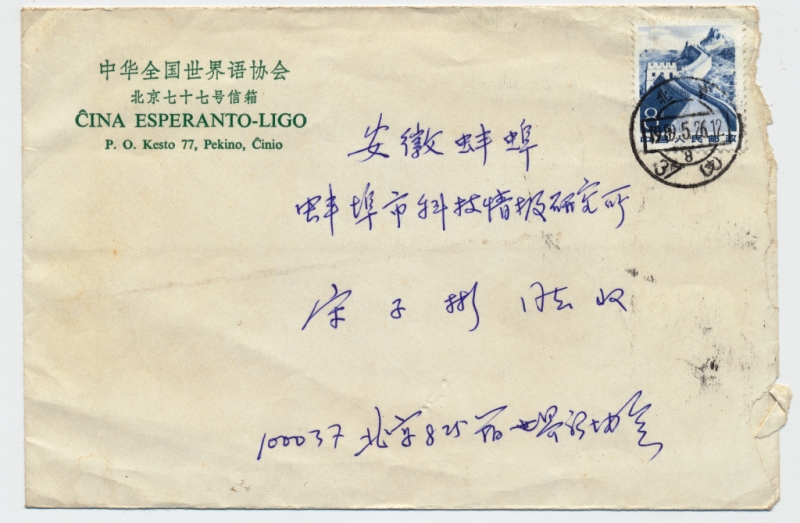 中华全国世界语协会
北京七十七号信箱
ĈINA ESPERANTO-LIGO
P. O. Kesto 77, Pekino, Ĉinio
8
中国人民邮政
北京
1989.5.26.12
8
(支)
安徽蚌埠
蚌埠市科技情报研究所
宋子彬 同志收
100037 北京825箱世界语协会